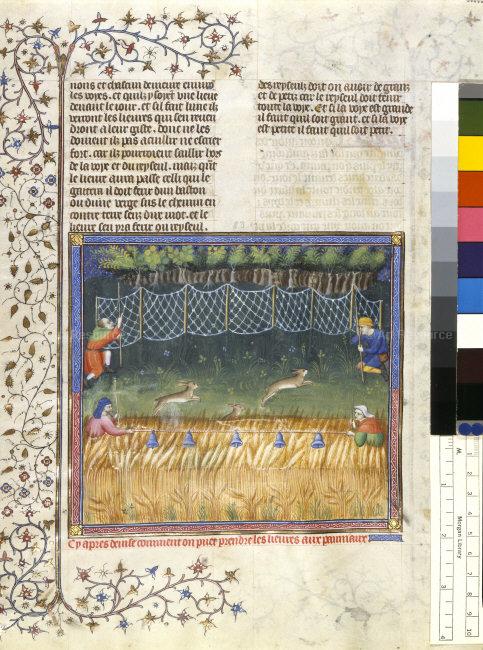 nons et chascun demeure emmy
les voyes. et quil y soyent une lieue
devant le jour. et sil fait lune ilz
verront les lievres qui sen revien
dront a leur giste. donc ne les
doivent ilz pas acuillir ne escrier
fort. car ilz pourroient saillir hors
de la voye et du reyseul. mais quant
le lievre aura passe celli qui le
guettera il doit ferir dun baston
ou dune verge sus le chemin en
contre terre senz dire mot. et le
lievre sen yra ferir ou reyseul.
des reyseulz doit on avoir de grantz
et de petiz car le reyseul doit tenir
toute la voye. Et si la voye est grande
il faut quil soit grant. et si la voye
est petite il faut quil soit petit.
Cy apres devise comment on puet prendre les lievres aux panniaux
Morgan Library